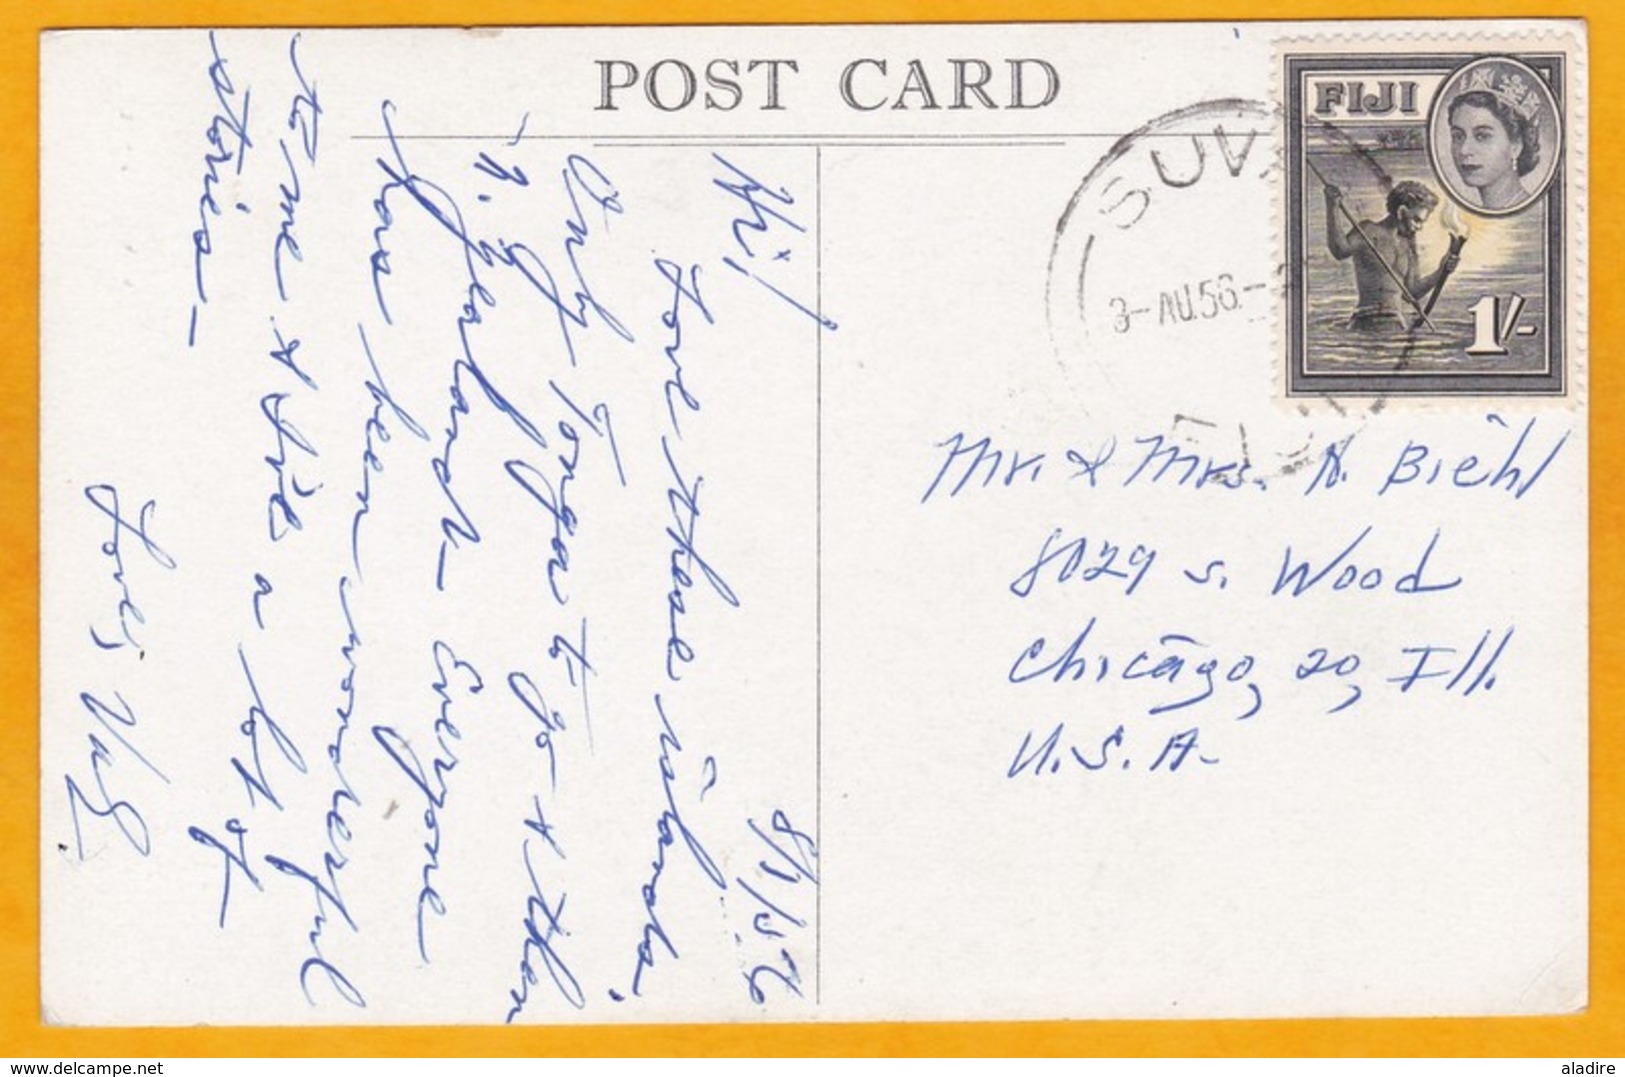 POST CARD
FIJI
1/-
SUVA
3-AU.56.-
FIJI
8/1/56
Hi!
Love these islands.
Only Tonga to go & then
N. Zealand - Everyone
has been wonderful
to me & I've a lot of
stories -
Love, Val
Mr. & Mrs. H. Biehl
8029 S. Wood
Chicago, 20, Ill.
U.S.A.
www.delcampe.net
aladire